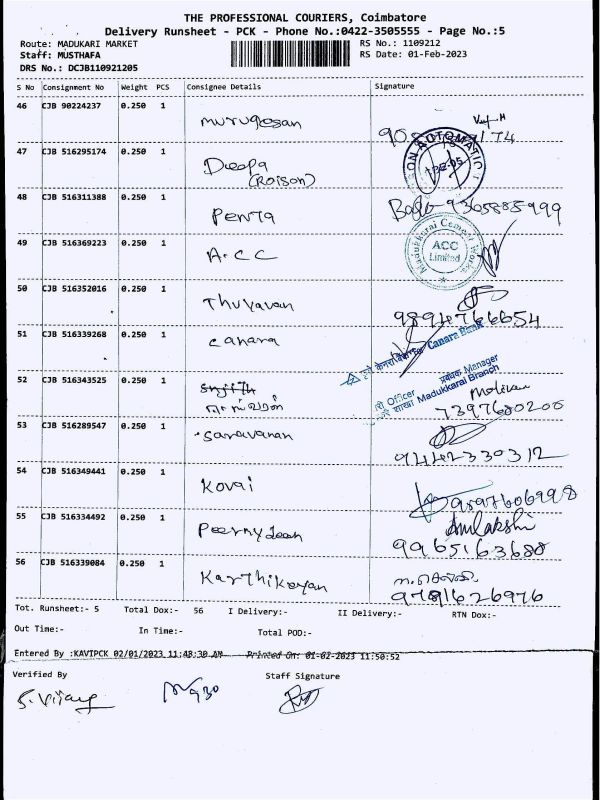 THE PROFESSIONAL COURIERS, Coimbatore
Delivery Runsheet - PCK - Phone No.:0422-3505555 - Page No.:5
Route: MADUKARI MARKET RS No.: 1109212
Staff: MUSTHAFA RS Date: 01-Feb-2023
DRS No.: DCJB110921205
S No Consignment No Weight PCS Consignee Details Signature
46 CJB 90224237 0.250 1 Murugesan
47 CJB 516295174 0.250 1 Deepa
(Roison) ON AUTOMATIC
48 CJB 516311388 0.250 1 Penta 9365885999
49 CJB 516369223 0.250 1 A.C.C Madukkarai Cement Works
ACC
Limited
50 CJB 516352016 0.250 1 Thuyavan 9894766654
51 CJB 516339268 0.250 1 canara Canara Bank
52 CJB 516343525 0.250 1 प्रबंधक Manager
Officer
शाखा Madukkarai Branch
7397680200
53 CJB 516289547 0.250 1 Saravanan 9442330312
54 CJB 516349441 0.250 1 Kovai
55 CJB 516334492 0.250 1
9965163688
56 CJB 516339084 0.250 1 Karthikeyan
Tot. Runsheet:- 5 Total Dox:- 56 I Delivery:- II Delivery:- RTN Dox:-
Out Time:- In Time:- Total POD:-
Entered By :KAVIPCK 02/01/2023 11:48:30 AM Printed On: 01-02-2023 11:50:52
Verified By Staff Signature